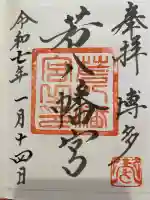 奉拝
博多
若八幡宮
令和七年一月十四日